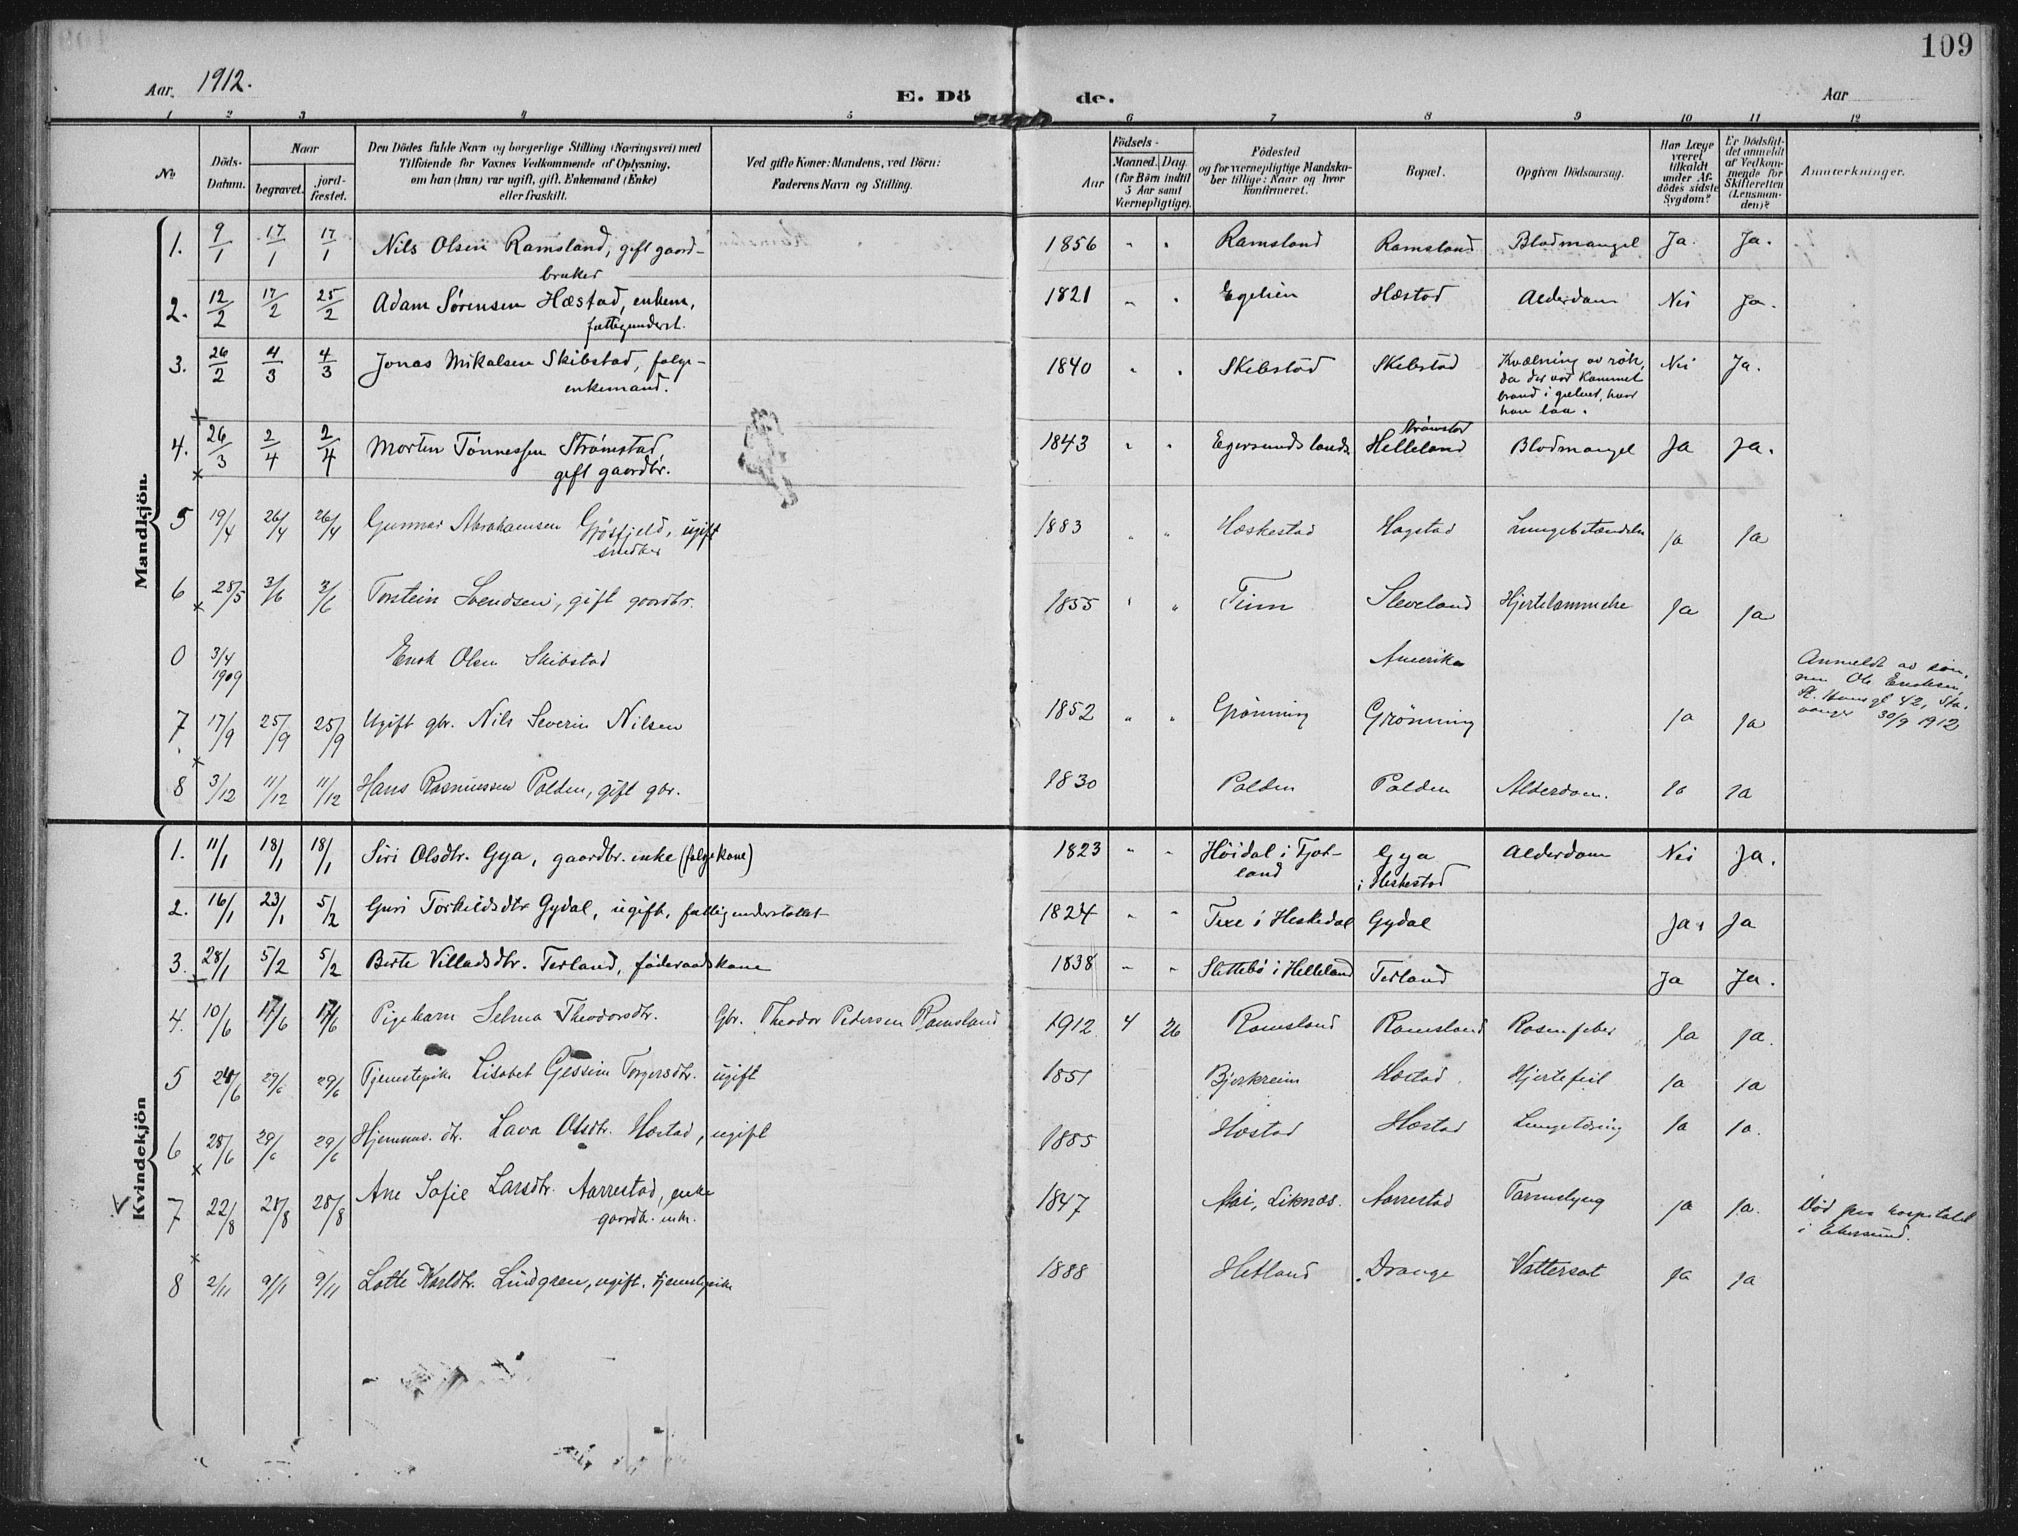 109
Aar. 1912.
E. Dö de.
Aar
1 2 3 4 5 6 7 8 9 10 11 12
No.
Döds-Datum.
Naar
begravet.
jord-fæstet.
Den Dödes fulde Navn og borgerlige Stilling (Næringsvei) med
Tilföiende for Voxnes Vedkommende af Oplysning,
om han (hun) var ugift, gift, Enkemand (Enke)
eller fraskilt.
Ved gifte Koner: Mandens, ved Börn:
Faderens Navn og Stilling.
Födsels-
Aar
Maaned. Dag.
(for Börn indtil
5 Aar samt
Værnepligtige).
Födested
og for værnepligtige Mandska-
ber tillige: Naar og hvor
konfirmeret.
Bopæl.
Opgiven Dödsaarsag.
Har Læge
været
tilkaldt
under Af-
dödes sidste
Sygdom?
Er Dödsfal-
det anmeldt
af Vedkom-
mende for
Skifteretten
(Lensman-
den)?
Anmærkninger.
Mandkjön.
1. 9/1 17/1 17/1 Nils Olsen Ramsland, gift gaard-
bruker
1856 " " Ramsland Ramsland Blodmangel Ja. Ja.
2. 12/2 17/2 25/2 Adam Sørensen Hæstad, enkem,
fattigunderst.
1821 " " Egelien Hæstad Alderdom Nei Ja.
3. 26/2 4/3 4/3 Jonas Mikalsen Skibstad, folge-
enkemand.
1840 " " Skibstad Skibstad Kvælning av røk,
da der var kommet
brand i gulvet, hvor
han laa. Nei Ja.
4. 26/3 2/4 2/4 Morten Tønnessen Strømstad,
gift gaardbr.
1843 " " Egersunds lands. Strømstad
Helleland Blodmangel Ja Ja.
5 19/4 26/4 26/4 Gunnar Abrahamsen Gjøsfjeld, ugift
snedker
1883 " " Heskestad Hagstad Lungebetændelse Ja Ja
6 28/5 3/6 3/6 Torstein Svendsen, gift gaardbr.
1855 " " Tim Sleveland Hjertelammelse Ja Ja
0 3/4 1909 Enok Olsen Skibstad
Amerika
Anmeldt av søn-
nen Ole Enoksen,
St. Hansgt 42, Sta-
vanger 30/9 1912
7 17/9 25/9 25/9 Ugift gbr. Nils Severin Nilsen
1852 " " Grønning Grønning Ja Ja
8 3/12 11/12 11/12 Hans Rasmussen Polden, gift gbr.
1830 Polden Polden Alderdom. Ja Ja
Kvindekjön
1. 11/1 18/1 18/1 Siri Olsdtr. Gya, gaardbr. enke (folgekone)
1823 " " Höidal i Fjot-
land Gya
i Heskestad Alderdom Nei Ja.
2. 16/1 23/1 5/2 Guri Torkildsdtr Gydal, ugift, fattigunderstøttet
1824 " " Tere i Heskedal Gydal Ja. Ja
3. 28/1 5/2 5/2 Berte Villadsdtr. Terland, föderaadskone
1838 " " Slettebö i Helleland Terland Ja Ja.
4. 10/6 17/6 17/6 Pigebarn Selma Theodorsdtr. Gbr. Theodor Pedersen Ramsland
1912 4 26 Ramsland Ramsland Rosenfeber Ja Ja.
5 24/6 29/6 29/6 Tjenestepike Lisabet Gessine Torgersdtr. ugift
1851 Bjerkreim Hæstad Hjertefeil Ja Ja
6 28/6 29/6 29/6 Hjemmev. dtr. Lava Olsdtr. Hæstad, ugift
1885 Hæstad Hæstad Lungetæring Ja Ja.
7 22/8 28/8 28/8 Ane Sofie Larsdtr. Aarrestad, enke
gaardbr. enke.
1847 Moi, Liknæs. Aarrestad Tarmslyng Ja Ja. Död paa hospitalet
i Ekersund.
8 2/11 9/11 9/11 Lotte Karldtr. Lindgren, ugift, tjenestepike
1888 Hetland Drange Vattersot Ja Ja